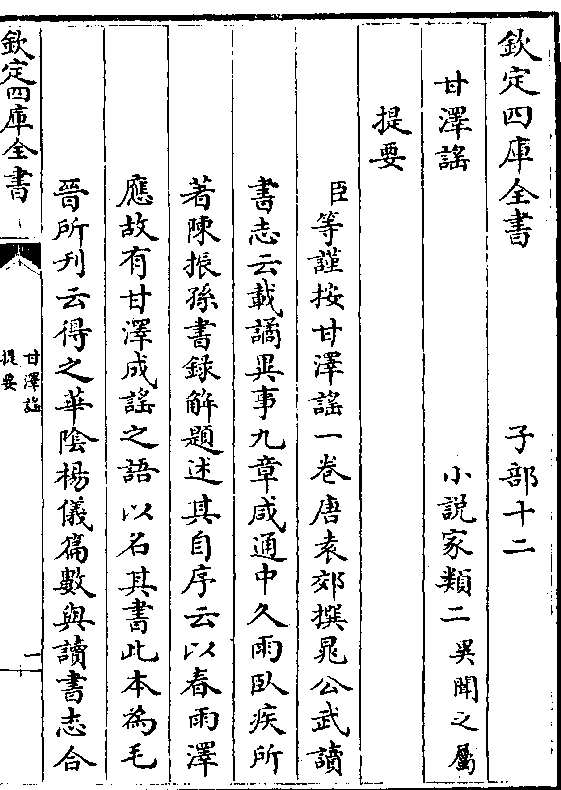 欽定四庫全書　子部十二
甘澤謠　小説家類二異聞之屬
提要
臣等謹按甘澤謠一卷唐袁郊撰晁公武讀
書志云載譎異事九章咸通中久雨臥疾所
著陳振孫書錄解題述其自序云以春雨澤
應故有甘澤成謠之語以名其書此本為毛
晉所刊云得之華陰楊儀篇數與讀書志合
欽定四庫全書
甘澤謠
提要
一